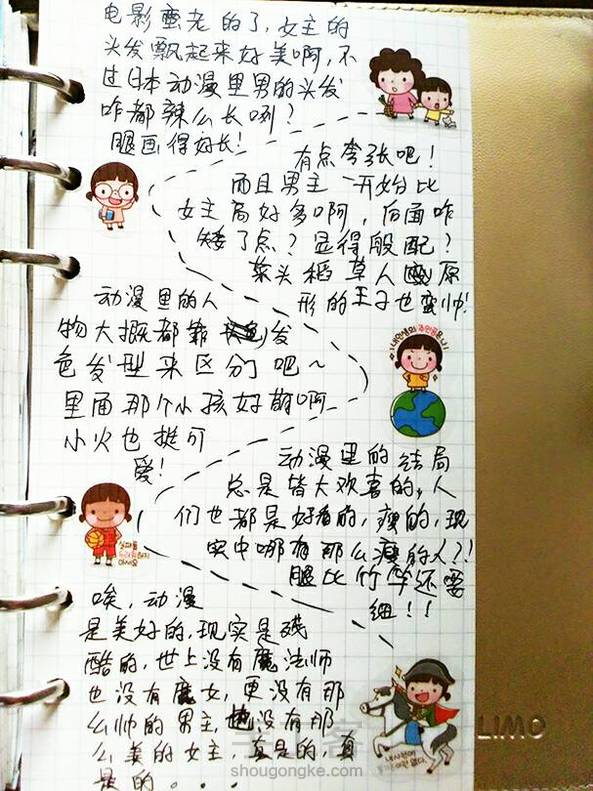 电影蛮老的了，女主的
头发飘起来好美啊，不
过日本动漫里男的头发
咋都辣么长咧？
腿画得好长！
有点夸张吧！
而且男主一开始比
女主高好多啊，后面咋
矮了点？显得般配？
菜头稻草人原
形的王子也蛮帅！
动漫里的人
物大概都靠发
色发型来区分吧~
里面那个小孩好萌啊
小火也挺可
爱！
动漫里的结局
总是皆大欢喜的，人
们也都是好看的，瘦的，现
实中哪有那么瘦的人？！
腿比竹竿还要
细！！
唉，动漫
是美好的，现实是残
酷的，世上没有魔法师
也没有魔女，更没有那
么帅的男主，也没有那
么美的女主，真是的，真
是的...
내 인생의 주인공은 나!
LIMO
shougongke.com